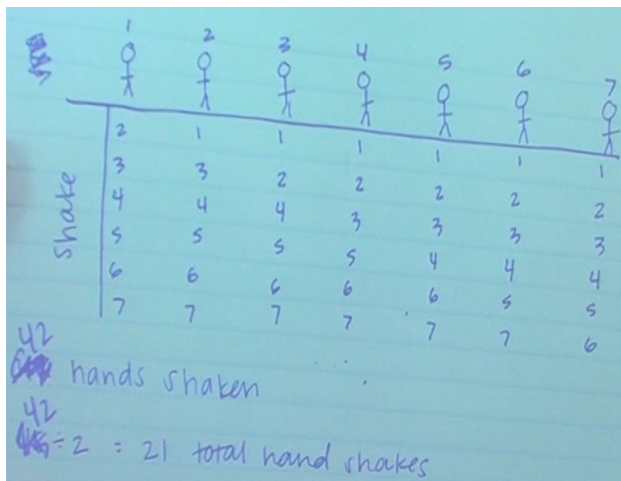 1 2 3 4 5 6 7
Shake
2 1 1 1 1 1 1
3 3 2 2 2 2 2
4 4 4 3 3 3 3
5 5 5 5 4 4 4
6 6 6 6 6 5 5
7 7 7 7 7 7 6
42
hands shaken
42
÷2 = 21 total hand shakes